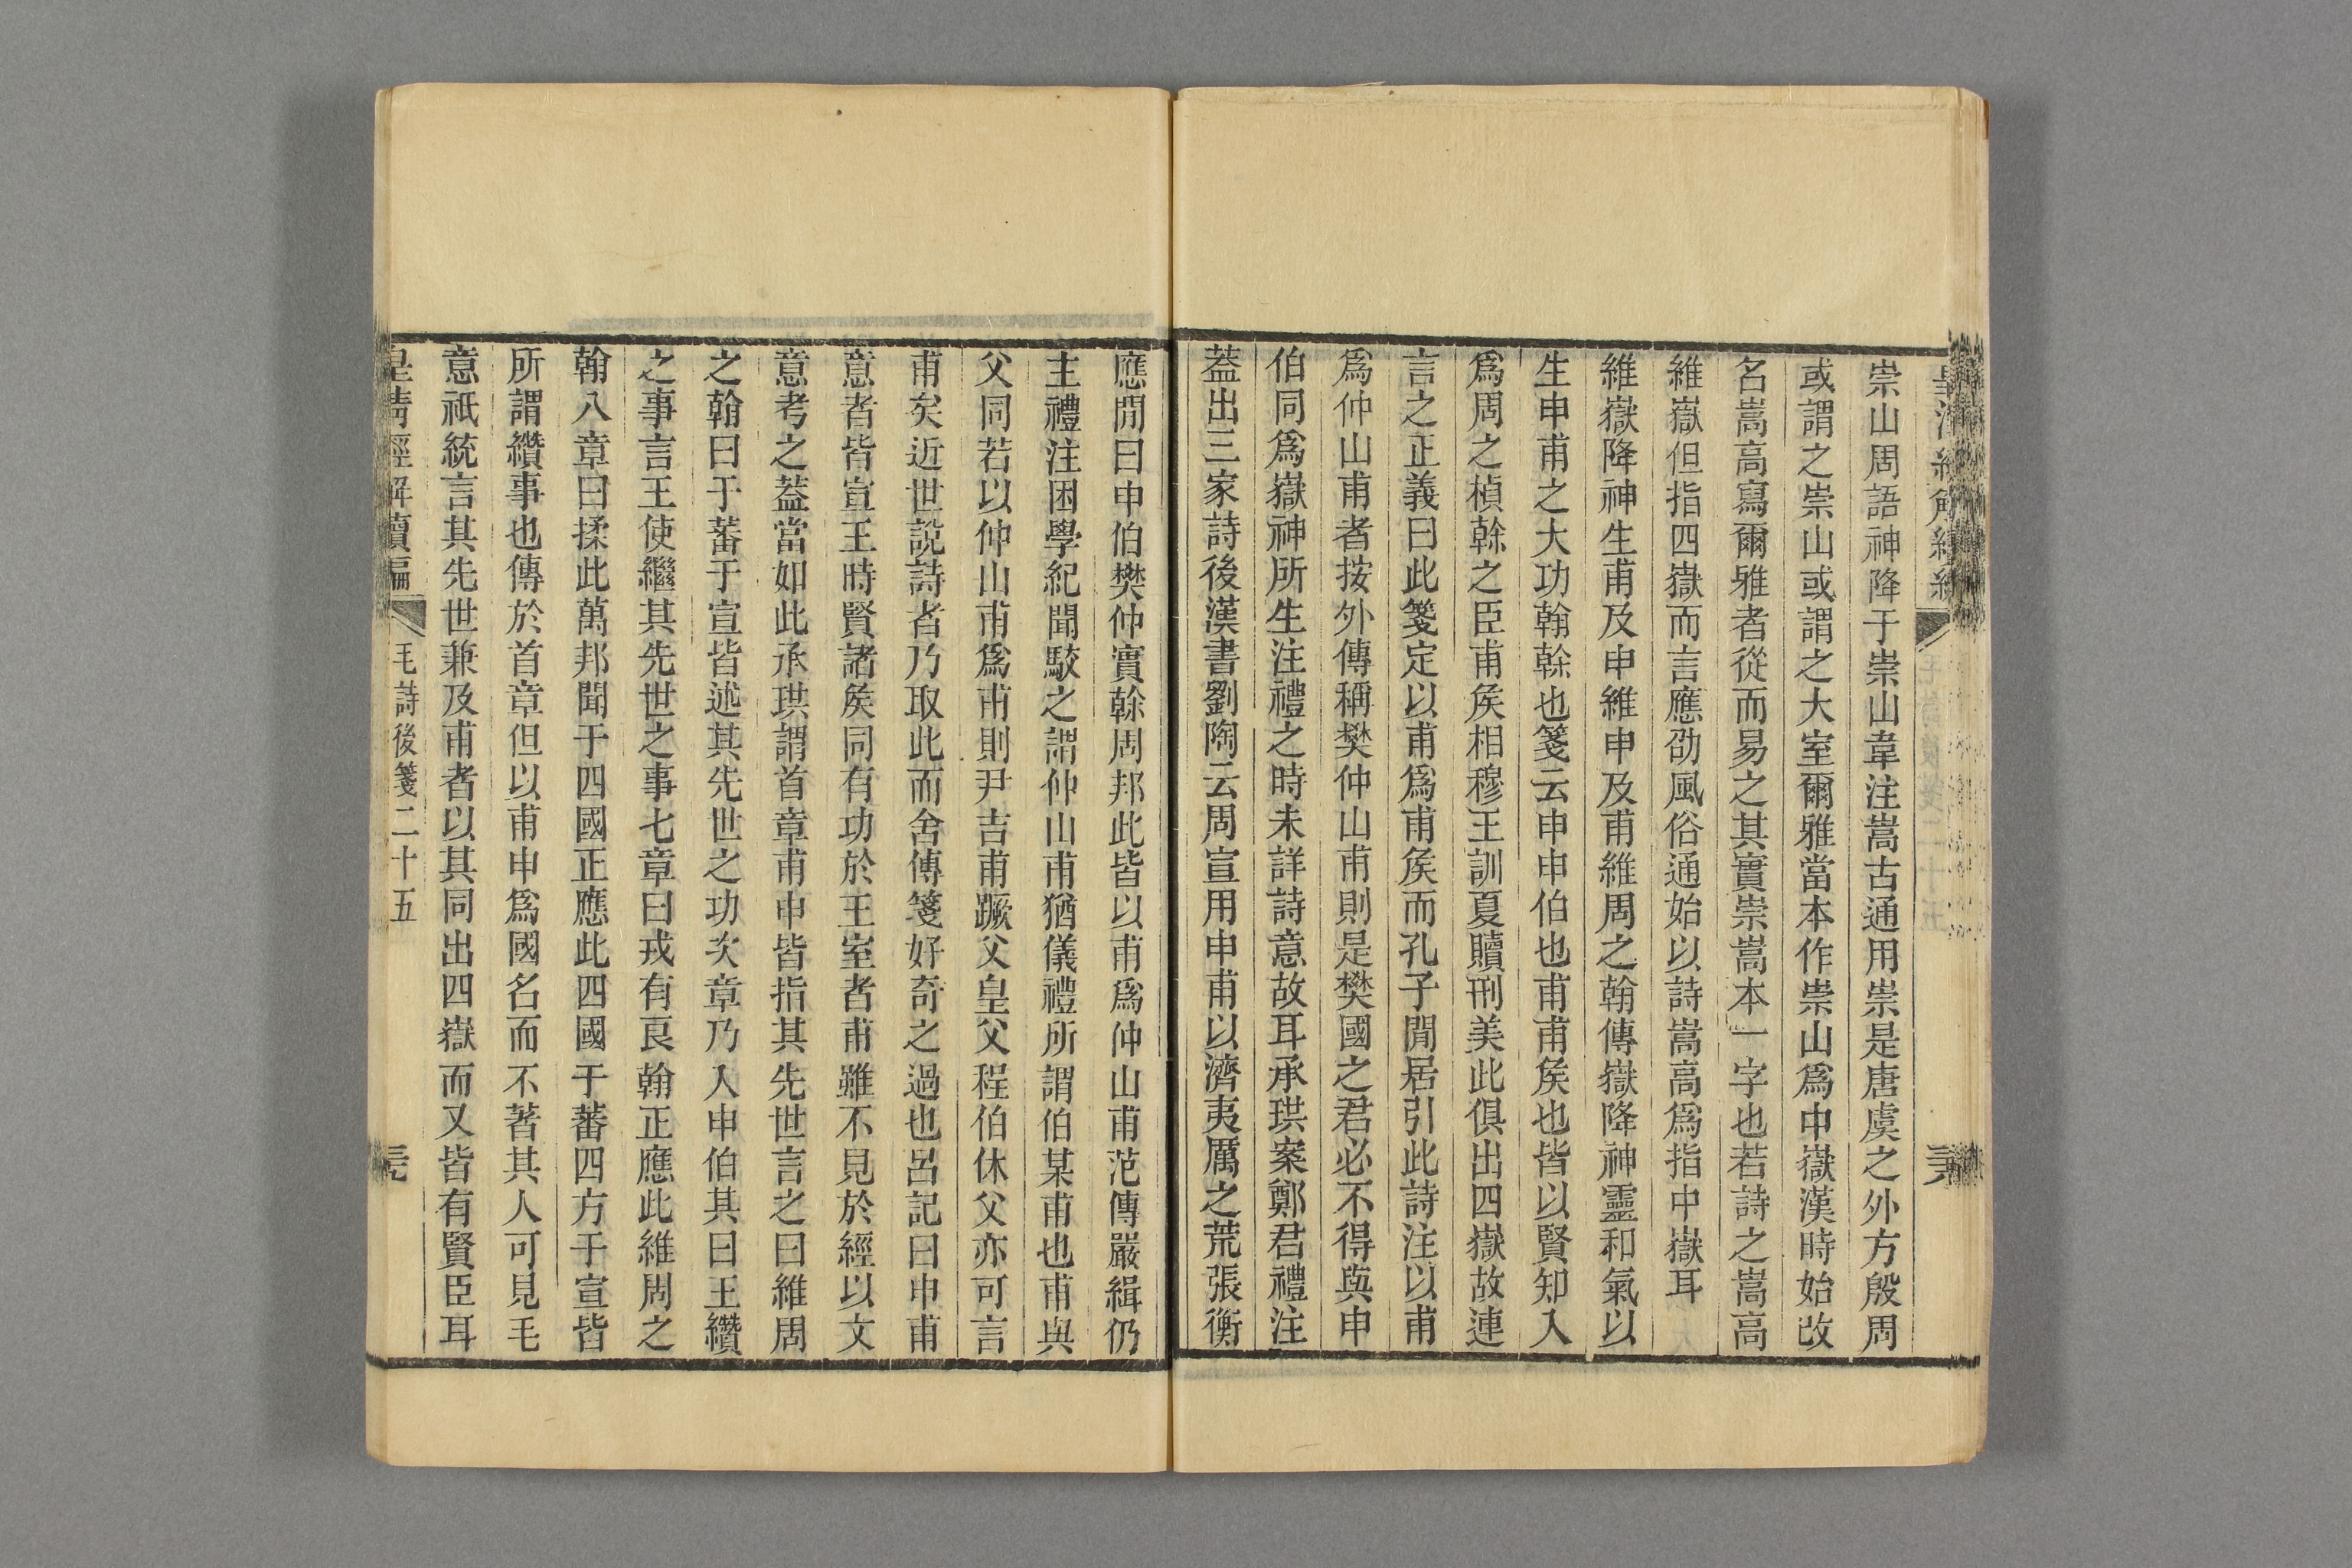 崇山周語神降于崇山韋注嵩古通用崇是唐虞之外方殷周
或謂之崇山或謂之大室爾雅當本作崇山爲中嶽漢時始改
名嵩高寫爾雅者從而易之其實崇嵩本一字也若詩之嵩高
維嶽但指四嶽而言應劭風俗通始以詩嵩高爲指中嶽耳
維嶽降神生甫及申維申及甫維周之翰傳嶽降神靈和氣以
生申甫之大功翰榦也箋云申申伯也甫甫矦也皆以賢知入
爲周之楨榦之臣甫矦相穆王訓夏贖刑美此俱出四嶽故連
言之正義曰此箋定以甫爲甫矦而孔子閒居引此詩注以甫
爲仲山甫者按外傳稱樊仲山甫則是樊國之君必不得與申
伯同爲嶽神所生注禮之時未詳詩意故耳承珙案鄭君禮注
葢出三家詩後漢書劉陶云周宣用申甫以濟夷厲之荒張衡
應閒曰申伯樊仲實榦周邦此皆以甫爲仲山甫范傳嚴緝仍
主禮注困學紀聞駮之謂仲山甫猶儀禮所謂伯某甫也甫與
父同若以仲山甫爲甫則尹吉甫蹶父皇父程伯休父亦可言
甫矣近世說詩者乃取此而舍傳箋好奇之過也呂記曰申甫
意者皆宣王時賢諸矦同有功於王室者甫雖不見於經以文
意考之葢當如此承珙謂首章甫申皆指其先世言之曰維周
之翰曰于蕃于宣皆述其先世之功次章乃入申伯其曰王纘
之事言王使繼其先世之事七章曰戎有良翰正應此維周之
翰八章曰揉此萬邦聞于四國正應此四國于蕃四方于宣皆
所謂纘事也傳於首章但以甫申爲國名而不著其人可見毛
意祇統言其先世兼及甫者以其同出四嶽而又皆有賢臣耳
皇淸經解續編 毛詩後箋二十五